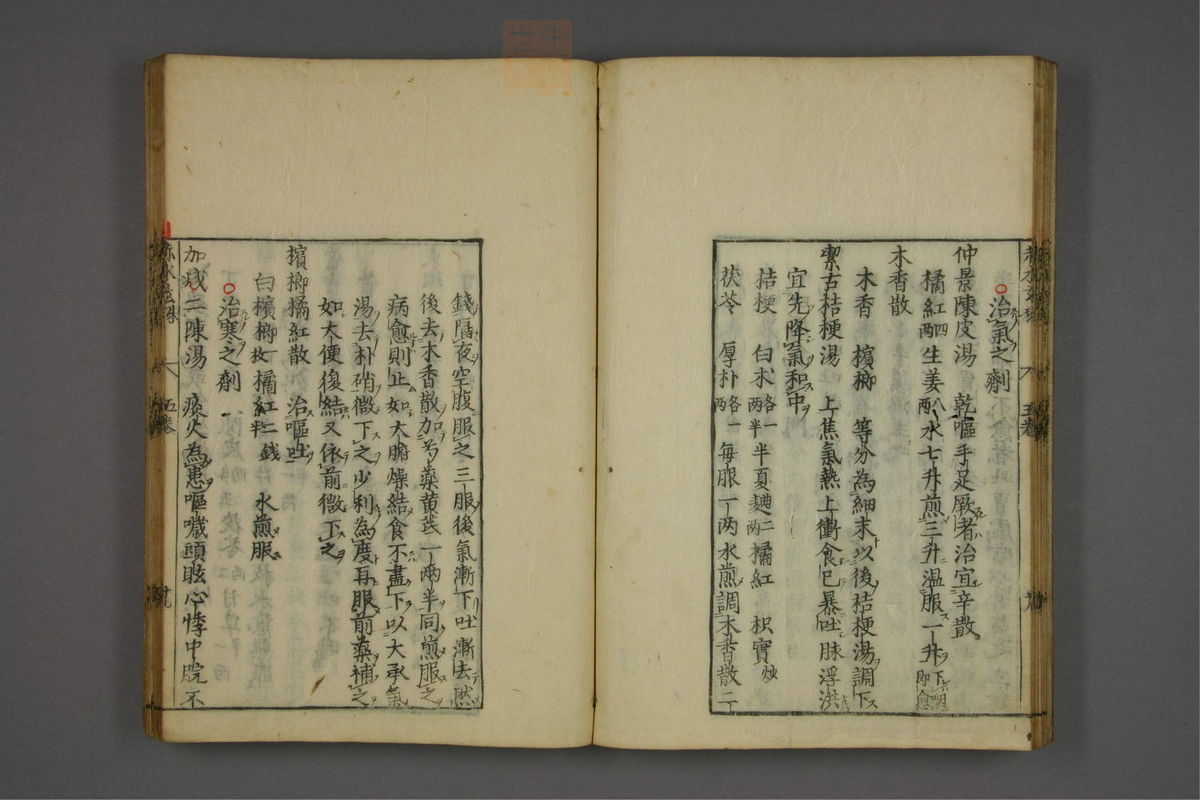 治氣之劑
仲景陳皮湯 乾嘔手足厥者治宜辛散
橘紅四兩 生姜八兩 水七升煎三升温服一升下咽即愈
木香散
木香 檳榔 等分為細末以後桔梗湯調下
絜古桔梗湯 上焦氣熱上衝食已暴吐脉浮洪
宜先降氣和中
桔梗 白朮各一兩半 半夏麯二兩 橘紅 枳實炒
茯苓 厚朴各一兩 毎服一两水煎調木香散二
錢隔夜空腹服之三服後氣漸下吐漸去然
後去木香散加芍藥黄芪一两半同煎服之
病愈則止如大腑燥結食不盡下以大承氣
湯去朴硝微下之少利為度再服前藥補之
如大便復結又依前微下之
檳榔橘紅散 治嘔吐
白檳榔一枚 橘紅二錢半 水煎服
治寒之劑
加減二陳湯 痰火為患嘔噦頭眩心悸中脘不
五卷